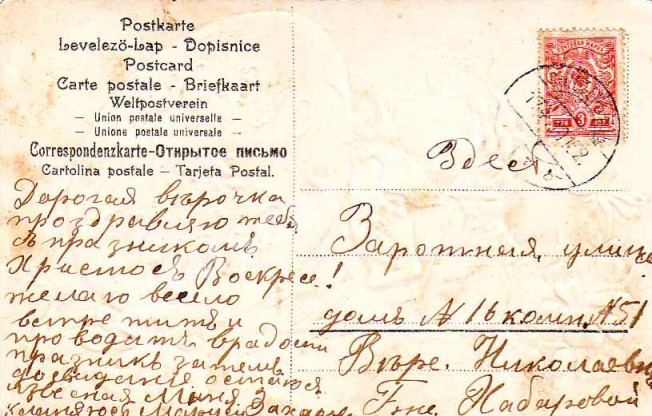 Postkarte
Levelező-Lap - Dopisnice
Postcard
Carte postale - Briefkaart
Weltpostverein
— Union postale universelle —
— Unione postale universale —
Correspondenzkarte-Открытое письмо
Cartolina postale - Tarjeta Postal.
3
Здесь
Дорогая Вѣрочка
поздравляю тебя
съ празникомъ
Христосъ Воскресе!
желаю весело
встретить и
проводить в радости
празникъ затемъ
досвидание остаюся
Маня
Заротная, улица
домъ № 16 комн. № 51
Вѣре. Николаевн
Гне. Хабаровой